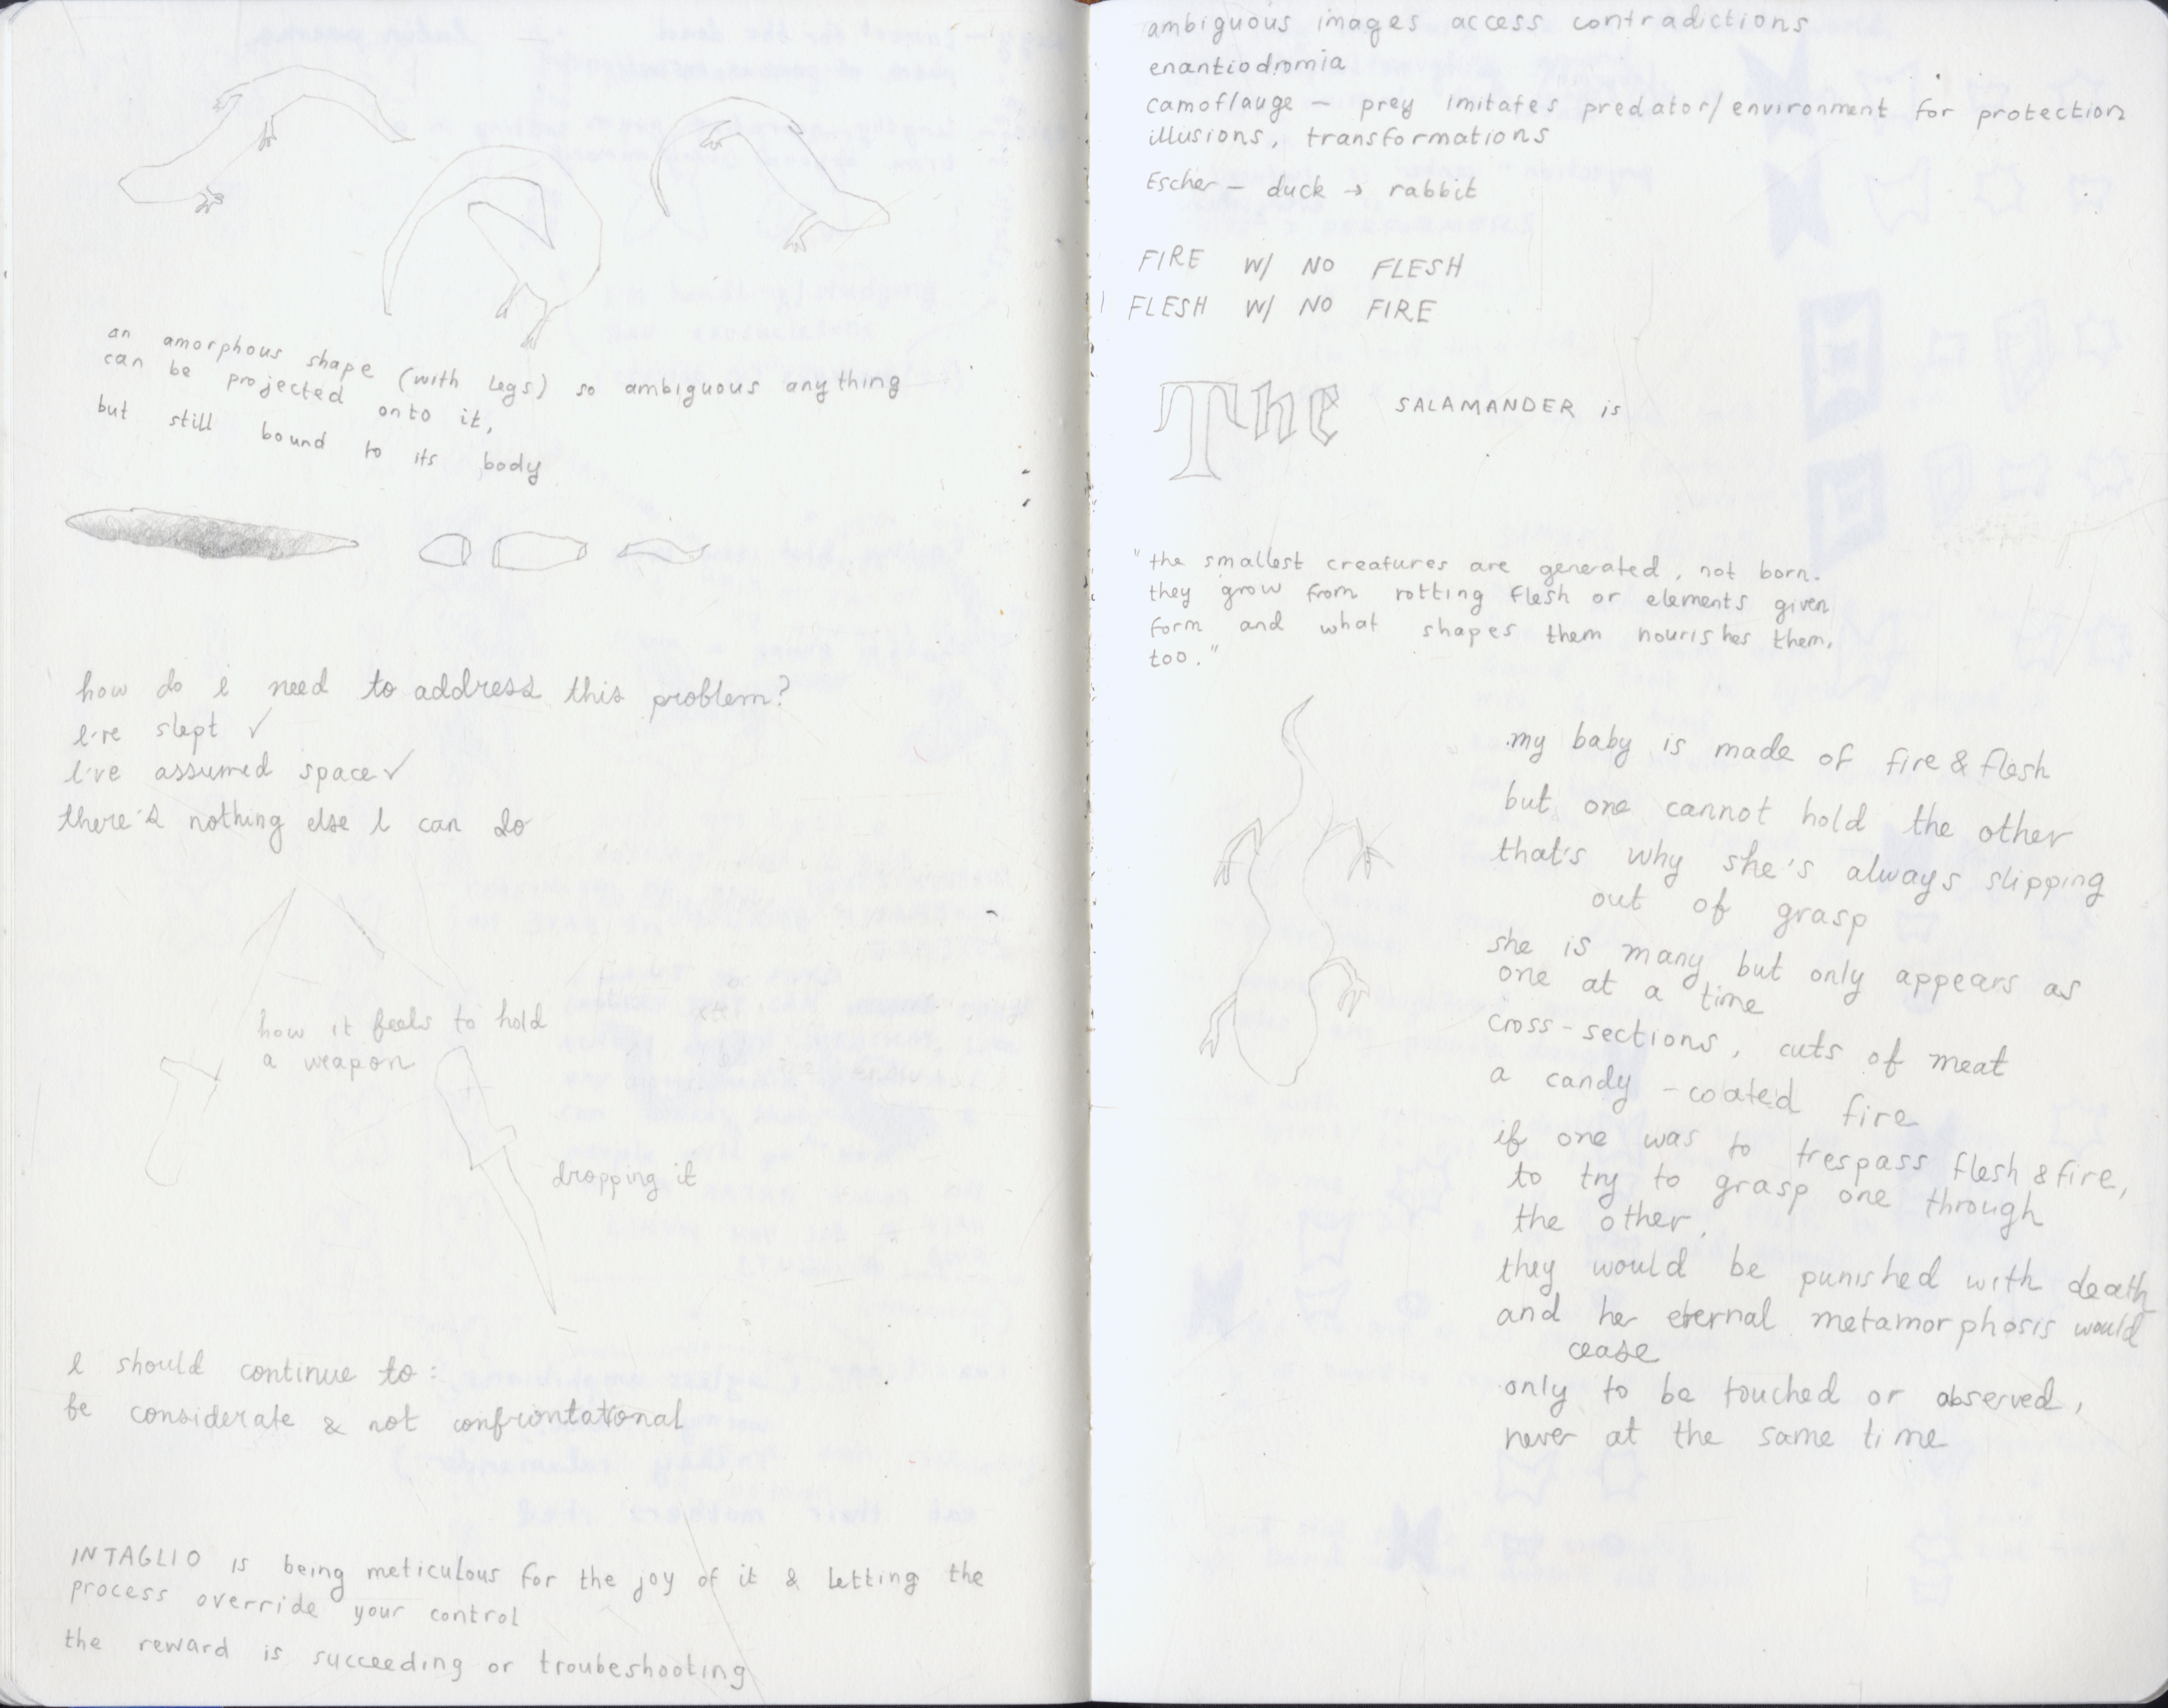 an amorphous shape (with legs) so ambiguous anything
can be projected onto it,
but still bound to its body
how do I need to address this problem?
I've slept ✓
I've assumed space ✓
there's nothing else I can do
how it feels to hold
a weapon
dropping it
I should continue to:
be considerate & not confrontational
INTAGLIO is being meticulous for the joy of it & letting the
process override your control
the reward is succeeding or troubeshooting
ambiguous images access contradictions
enantiodromia
camoflauge - prey imitates predator/environment for protection
illusions, transformations
Escher - duck → rabbit
FIRE W/ NO FLESH
FLESH W/ NO FIRE
The SALAMANDER is
"the smallest creatures are generated, not born.
they grow from rotting flesh or elements given
form and what shapes them nourishes them,
too."
my baby is made of fire & flesh
but one cannot hold the other
that's why she's always slipping
out of grasp
she is many but only appears as
one at a time
cross-sections, cuts of meat
a candy-coated fire
if one was to trespass flesh & fire,
to try to grasp one through
the other,
they would be punished with death
and her eternal metamorphosis would
cease
only to be touched or observed,
never at the same time